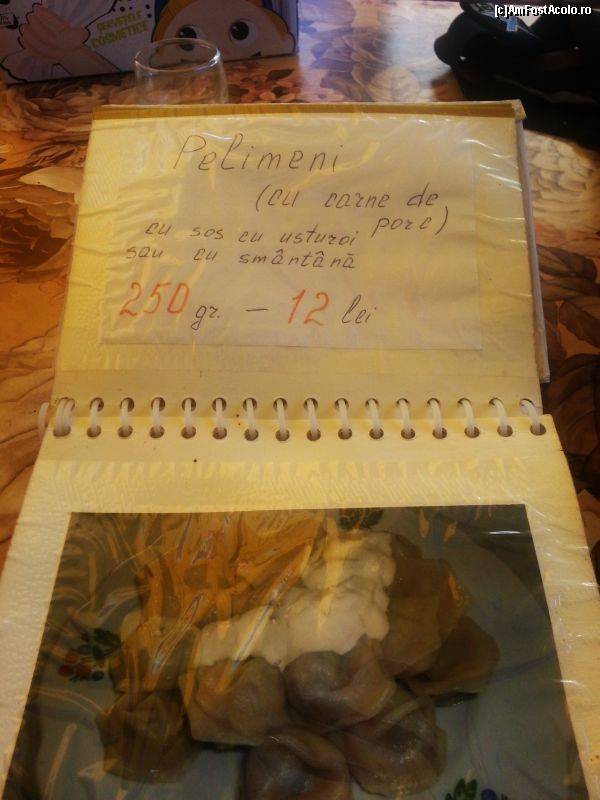 (c)AmFostAcolo.ro
ȘERVEȚELE
COSMETICE
Pelimeni
(cu carne de
porc)
cu sos cu usturoi
sau cu smântână
250 gr. - 12 lei